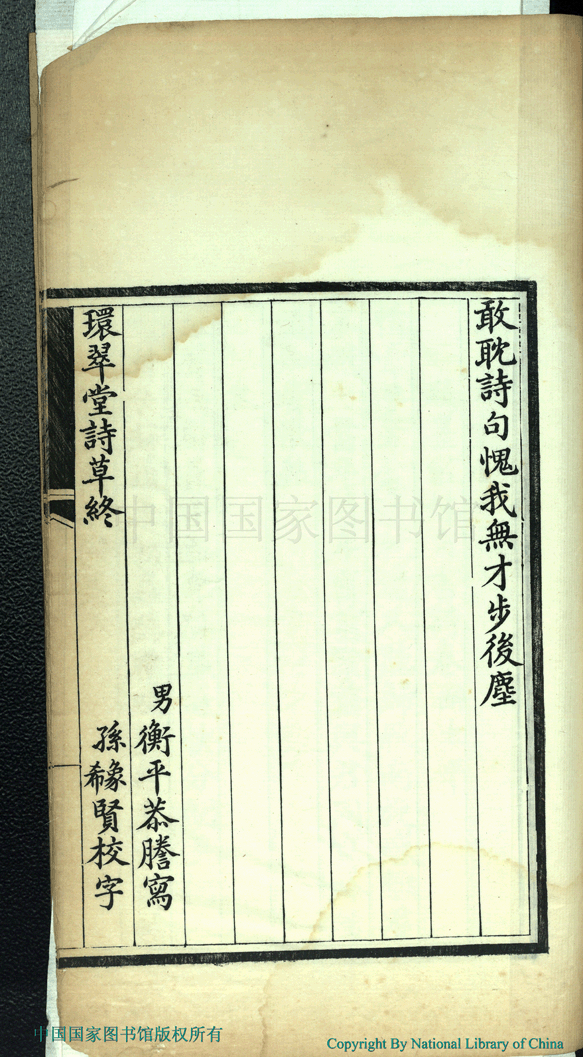 敢耽詩句愧我無才步後塵
男衡平恭謄寫
孫象希賢校字
環翠堂詩草終
中国国家图书馆
中国国家图书馆版权所有
Copyright By National Library of China